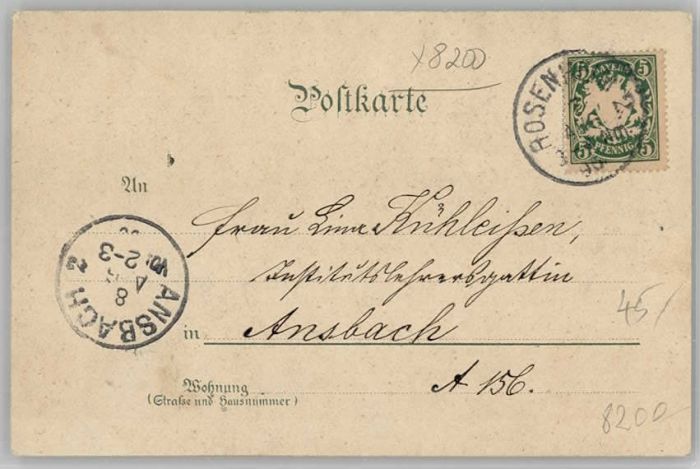 x8200
Postkarte
5 BAYERN 5
5 PFENNIG 5
ROSEN
An
Frau Lina Kühleißen,
Institutslehrersgattin
in Ansbach
A 156.
Wohnung
(Straße und Hausnummer)
ANSBACH 2
8
2-3
45/
8200